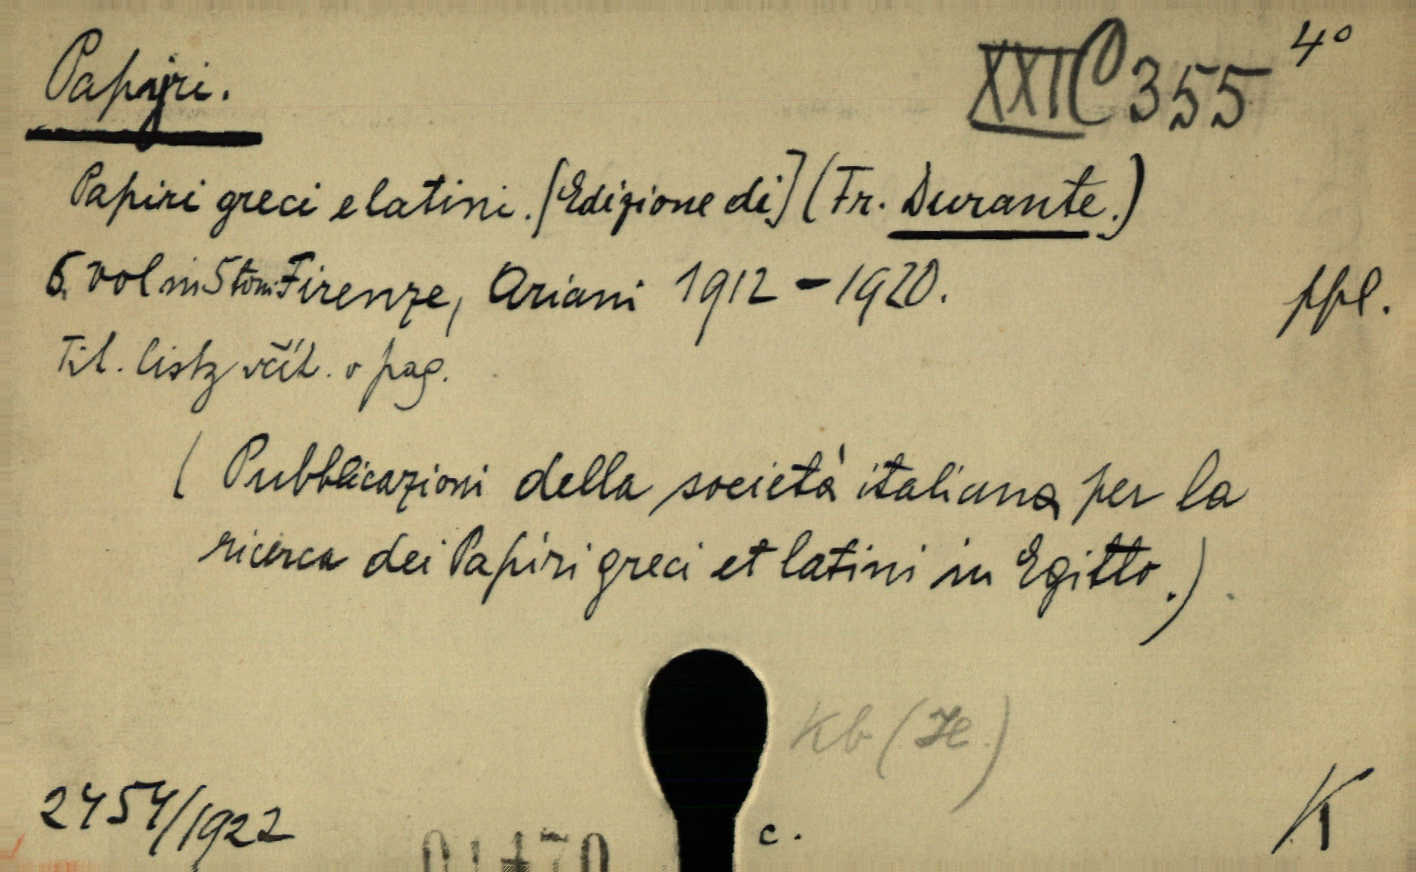 Papyri.
XXII C 355 4°
Papiri greci e latini. [Edizione di] (Fr. Durante.)
5. vol in 5 tom Firenze, Ariani 1912 – 1920.
ppl.
Tit. listy včít. v pag.
(Pubblicazioni della società italiana per la
ricerca dei Papiri greci et latini in Egitto.)
Kb (Je.)
2454/1922
c.
K